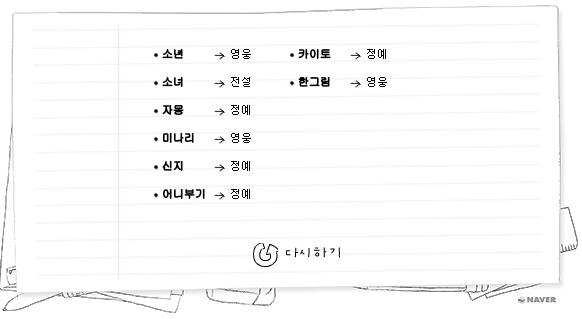 • 소년 → 영웅
• 소녀 → 전설
• 자몽 → 정예
• 미나리 → 영웅
• 신지 → 정예
• 어니부기 → 정예
• 카이토 → 정예
• 한그림 → 영웅
다시하기
NAVER